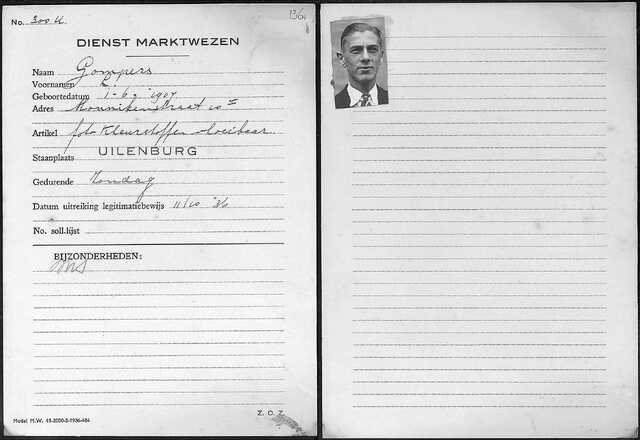 No. 300 U
136
DIENST MARKTWEZEN
Naam Gompers
Voornamen
Geboortedatum 1-6-1907
Adres Monnikenstraat 10 II
Artikel foto Kleurstoffen vloeibaar
Staanplaats UILENBURG
Gedurende Zondag
Datum uitreiking legitimatiebewijs 11/10 '36
No. soll.lijst
BIJZONDERHEDEN:
Z. O. Z.
Model M.W. 49-2000-2-1936-484